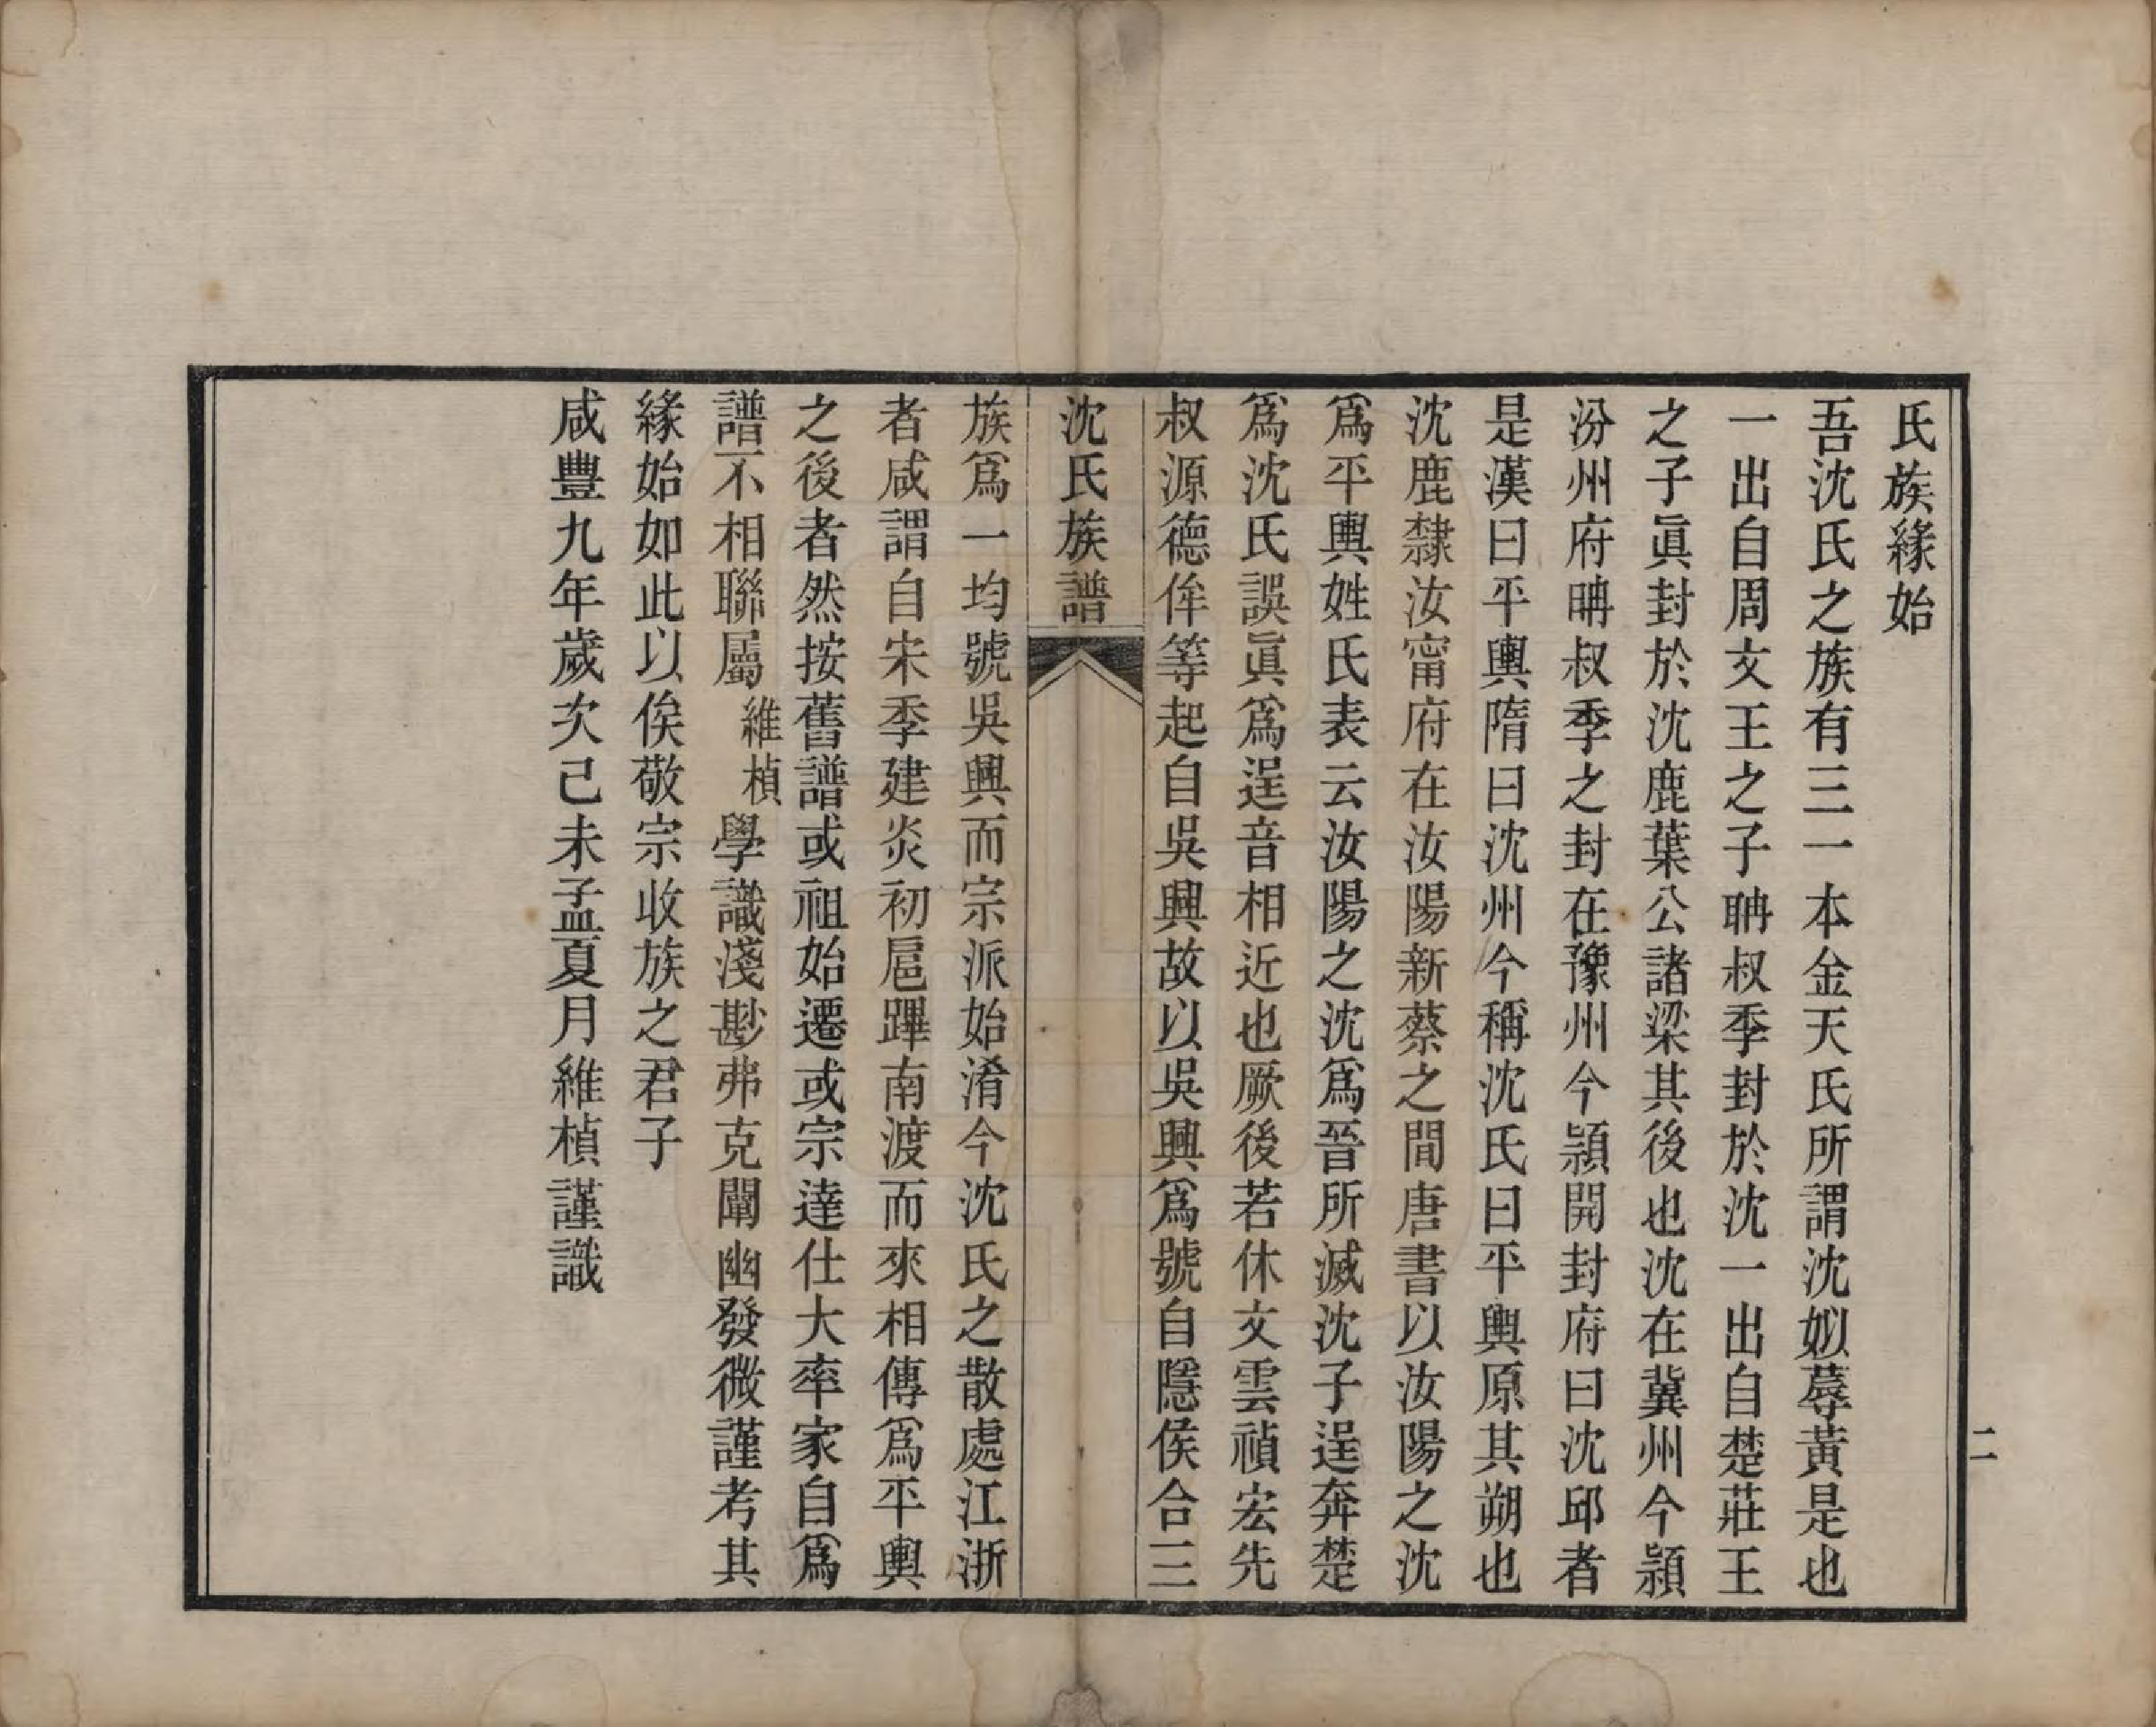 氏族緣始
吾沈氏之族有三一本金天氏所謂沈姒蓐黃是也
一出自周文王之子聃叔季封於沈一出自楚莊王
之子眞封於沈鹿葉公諸梁其後也沈在冀州今潁
汾州府聃叔季之封在豫州今潁開封府曰沈邱者
是漢曰平輿隋曰沈州今稱沈氏曰平輿原其朔也
沈鹿隸汝甯府在汝陽新蔡之間唐書以汝陽之沈
爲平輿姓氏表云汝陽之沈爲晉所滅沈子逞奔楚
爲沈氏誤眞爲逞音相近也厥後若休文雲禎宏先
叔源德侔等起自吳興故以吳興爲號自隱侯合三
沈氏族譜
族爲一均號吳興而宗派始淆今沈氏之散處江浙
者咸謂自宋季建炎初扈蹕南渡而來相傳爲平輿
之後者然按舊譜或祖始遷或宗達仕大率家自爲
譜不相聯屬維楨學識淺尠弗克闡幽發微謹考其
緣始如此以俟敬宗收族之君子
咸豐九年歲次己未孟夏月維楨謹識
二